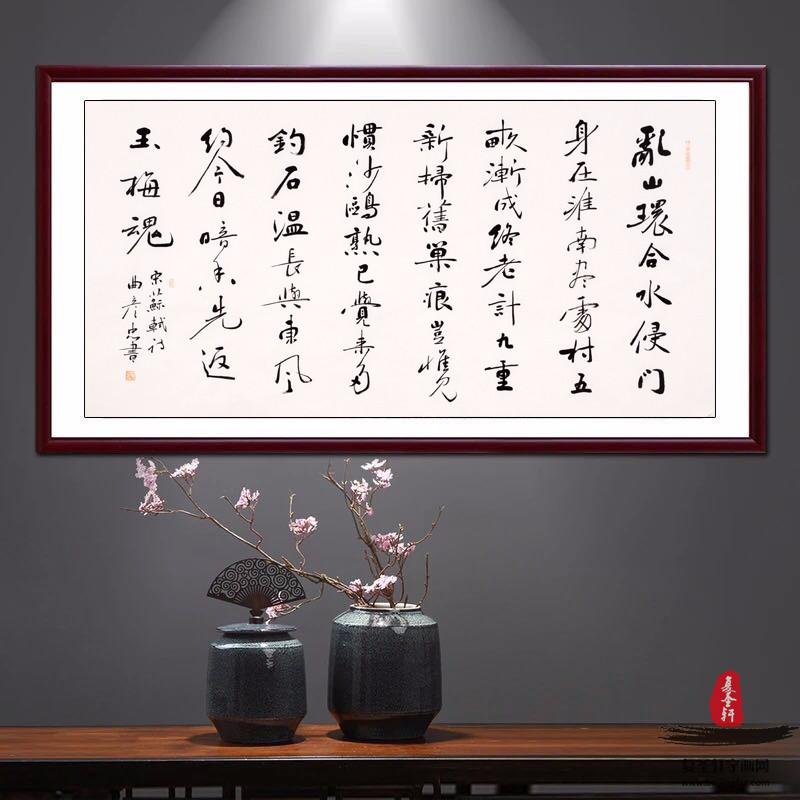 亂山環合水侵门
身在淮南尽處村五
畝漸成終老計九重
新掃舊巢痕豈惟见
慣沙鷗熟已覺来多
釣石温長與東风
約今日暗香先返
玉梅魂
宋蘇軾诗
曲彦忠書
字画网